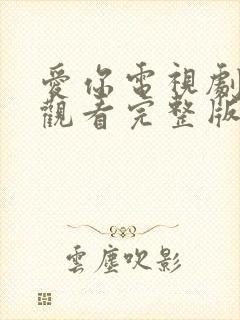 愛你電視劇
觀看完整版
雲塵吹影